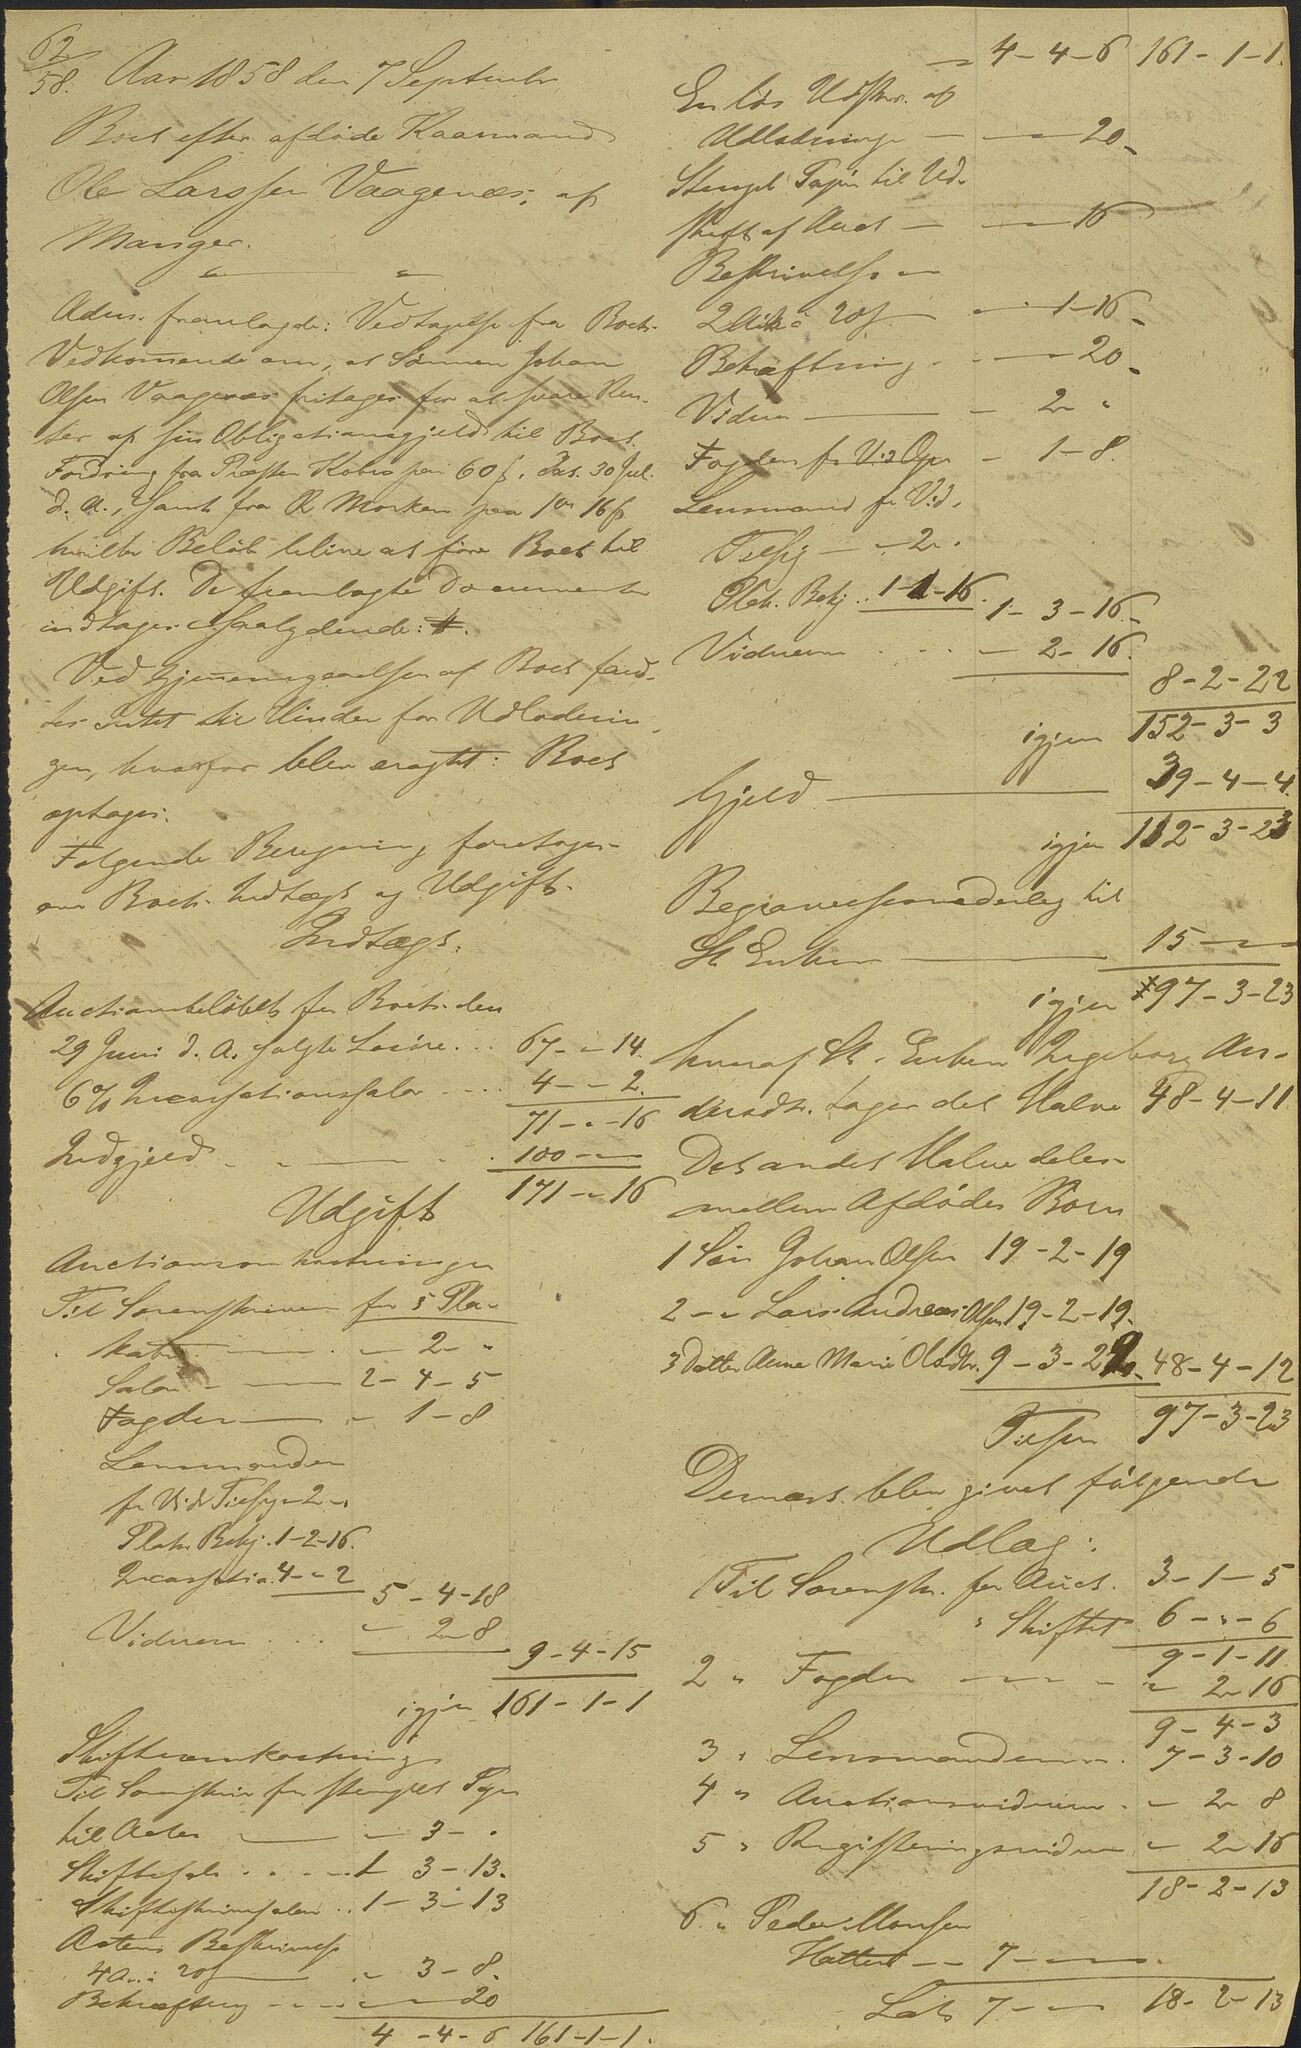 62
58.
Aar 1858 den 7 Septembr
Boet efter afdøde Kaarmand
Ole Larssen Vaagenæs, af
Manger.
Adm. fremlagde: Vedtagelse fra Boets
Vedkommende om, at Sønnen Johan
Olsen Vaagenæs fritages for at svare Ren-
ter af sin Obligationsgjeld til Boet.
Fordring fra Præsten Koren paa 60 ß. Das. 30 Jul.
d. A., samt fra R Morken paa 1 ort 16 ß
hvilke Beløb blive at føre Boet til
Udgift. De fremlagte Documenter
indtages saalydende: #.
Ved Gjennemgaaelsen af Boet fand-
tes Intet til Hinder for Udlodnin
gen, hvorfor blev eragtet: Boet
optages.
Følgende Beregning foretoges
over Boets Indtægt og Udgift.
Indtægt.
Auctionsbeløbet for Boets den
29 Juni d. A. solgte Løsøre ... 67 - " - 14.
6 % Incassationssalær ... 4 - " - 2.
71 - " - 16
Indgjeld . - . 100 - " - "
171 - " - 16
Udgift
Auctionsomkostninger
Til Sorenskriveren for 5 Pla-
kater - 2 - "
Salær - 2 - 4 - 5
Fogden - " - 1 - 8
Lensmanden
for Vid. Tilsig. - 2 - "
Plak. Bekj. 1 - 2 - 16.
Incassatio. 4 - " - 2
5 - 4 - 18
Vidnerne ... " - 2 - 8
9 - 4 - 15
igjen 161 - 1 - 1
Skifteomkostninger
Til Sorenskriv. for stemplet Papir
til Acten - " - 3 - "
Skiftesalær .... 1 - 3 - 13.
Skifteskriversalær .. 1 - 3 - 13
Actens Beskrivelse
4 Ark à 20 ß " - 3 - 8.
Bekræftning - " - " - 20
4 - 4 - 6 161 - 1 - 1.
" 4 - 4 - 6 161 - 1 - 1.
En løs Udskr. af
Udlodningen - " - 20
Stemplet Papir til Ud-
skrift af Auct - " - 16
Beskrivelse
2 Ark à 20 ß - " - 1 - 16
Bekræftning - " - 20
Vidner - " - 2 - "
Fogden for Vid. Opn - 1 - 8.
Lensmand for Vid.
Tilsig - " - 2 - "
Plak. Bekj. 1 - 1 - 16.
1 - 3 - 16.
Vidnerne ... " - 2 - 16.
8 - 2 - 22
igjen 152 - 3 - 3
Gjeld 39 - 4 - 4
igjen 112 - 3 - 23
Begravelsesvederlag til
St. Enken 15 - " - "
igjen 97 - 3 - 23
hvoraf St. Enken Ingeborg An-
dersdtr. tager det Halve 48 - 4 - 11
Det andet Halve deles
mellem Afdødes Børn
1 Søn Johan Olsen 19 - 2 - 19
2 - " Lars Andreas Olsen 19 - 2 - 19.
3 Datter Anne Marie Olsdtr. 9 - 3 - 22 48 - 4 - 12
Tilsm 97 - 3 - 23
Dernæst blev givet følgende
Udlæg:
1 Til Sorenskr. for Auct. 3 - 1 - 5
" Skiftet 6 - " - 6
9 - 1 - 11
2 " Fogden - " - 2 - 16
9 - 4 - 3
3 " Lensmanden 7 - 3 - 10
4 " Auctionsvidnerne - " - 2 - 8
5 " Registeringsvidnerne " - 2 - 16
18 - 2 - 13
6 " Peder Monsen
Hatten - 7 - " - "
Lat. 7 - " - " 18 - 2 - 13